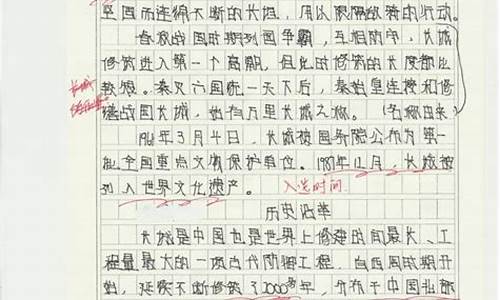 坚固而连绵不断的长垣，用以限隔敌骑的行动。
春秋战国时期列国争霸，互相防守，长城
修筑进入第一个高潮，但此时修筑的长度都比
较短。秦灭六国统一天下后，秦始皇连接和修
长城
缮战国长城，始有万里长城之称。（名称由来）
1961年3月4日，长城被国务院公布为第一
批全国重点文物保护单位。1987年12月，长城被
列入世界文化遗产。 入选时间
历史沿革
长城是中国也是世界上修建时间最长、工
程量最大的一项古代防御工程，自西周时期开
始，延续不断修筑了2000多年，分布于中国北部